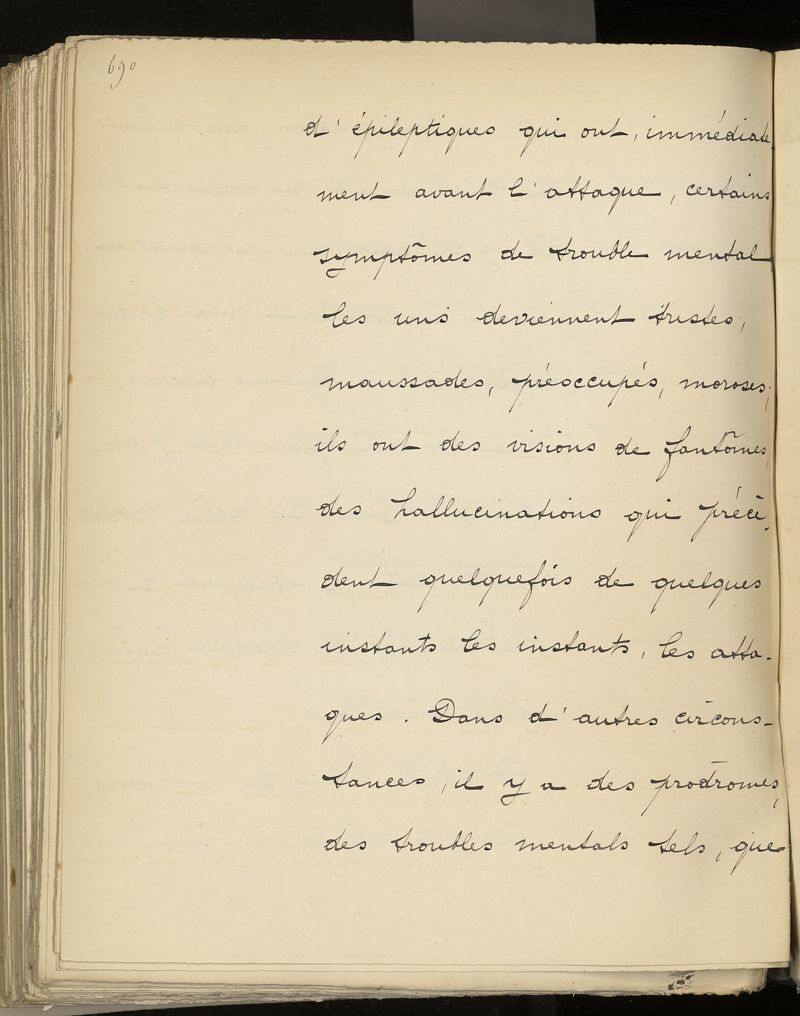 690
d'épileptiques qui ont, immédiate
ment avant l'attaque, certains
symptômes de trouble mental
les uns deviennent tristes,
maussades, préoccupés, moroses,
ils ont des visions de fantômes,
des hallucinations qui précè-
dent quelquefois de quelques
instants les instants, les atta-
ques. Dans d'autres circons-
tances, il y a des prodromes,
des troubles mentals tels, que